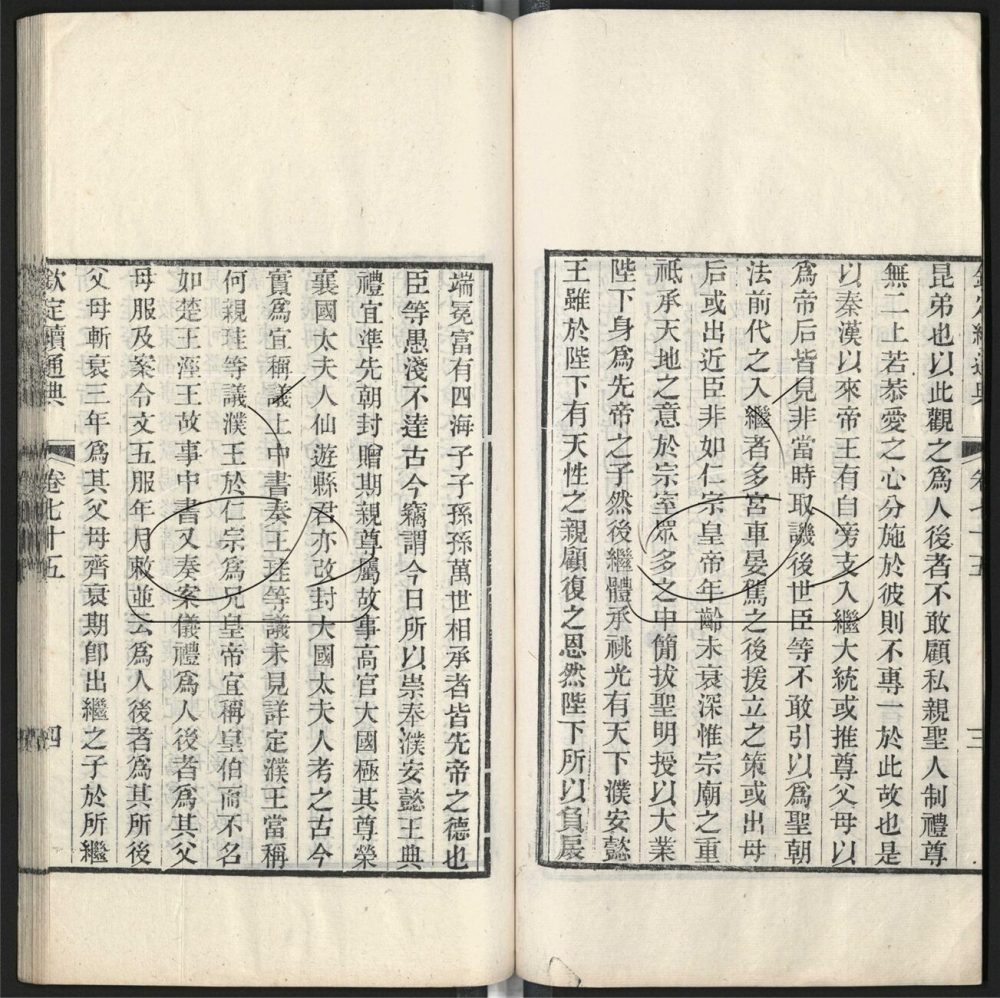 昆弟也以此觀之爲人後者不敢顧私親聖人制禮尊
無二上若恭愛之心分施於彼則不專一於此故也是
以秦漢以來帝王有自旁支入繼大統或推尊父母以
爲帝后皆見非當時取譏後世臣等不敢引以爲聖朝
法前代之入繼者多宮車晏駕之後援立之策或出母
后或出近臣非如仁宗皇帝年齡未衰深惟宗廟之重
祗承天地之意於宗室眾多之中簡拔聖明授以大業
陛下身爲先帝之子然後繼體承祧光有天下濮安懿
王雖於陛下有天性之親顧復之恩然陛下所以負扆
端冕富有四海子子孫孫萬世相承者皆先帝之德也
臣等愚淺不達古今竊謂今日所以崇奉濮安懿王典
禮宜準先朝封贈期親尊屬故事高官大國極其尊榮
襄國太夫人仙遊縣君亦改封大國太夫人考之古今
實爲宜稱議上中書奏王珪等議未見詳定濮王當稱
何親珪等議濮王於仁宗爲兄皇帝宜稱皇伯而不名
如楚王涇王故事中書又奏案儀禮爲人後者爲其父
母服及案令文五服年月敕並云爲人後者爲其所後
父母斬衰三年爲其父母齊衰期卽出繼之子於所繼
欽定續通典 卷七十五 四